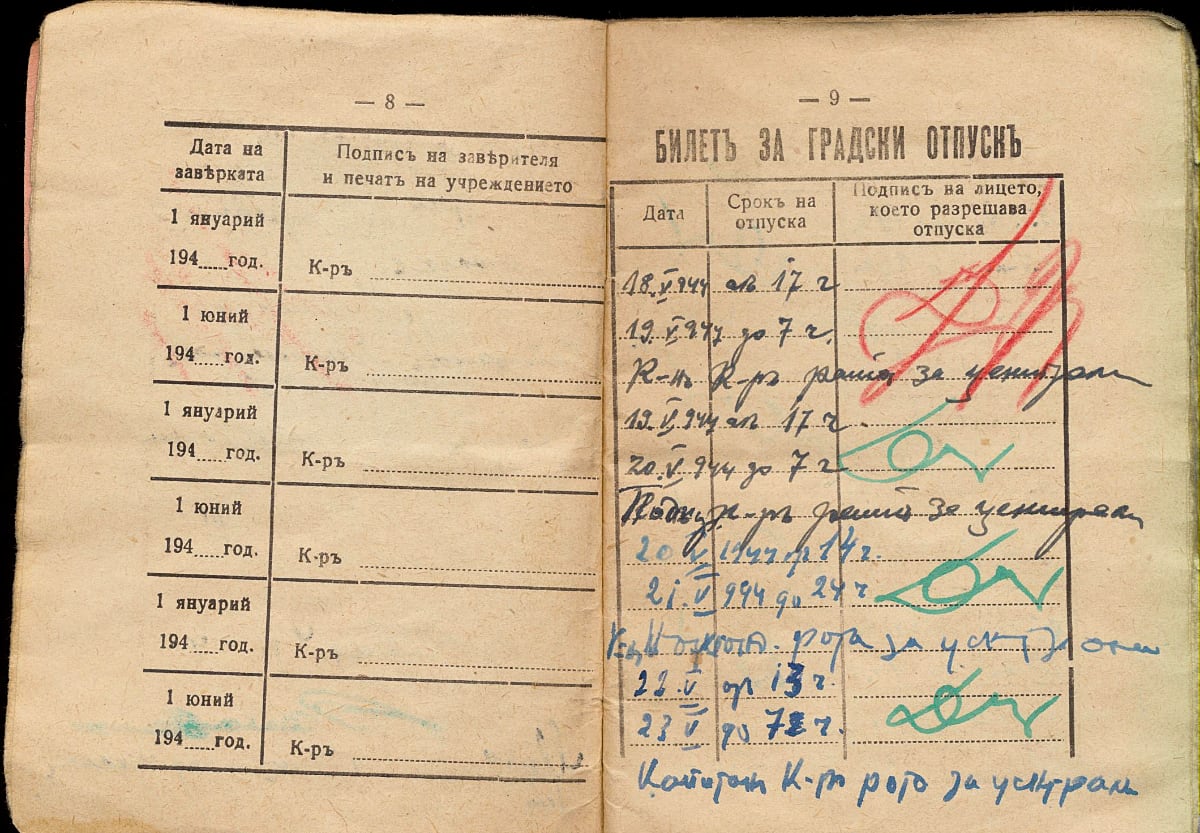 — 8 —
Дата на завѣрката
Подписъ на завѣрителя
и печатъ на учреждението
1 януарий
194.....год.
К-ръ
1 юний
194.....год.
К-ръ
1 януарий
194.....год.
К-ръ
1 юний
194.....год.
К-ръ
1 януарий
194.....год.
К-ръ
1 юний
194.....год.
К-ръ
— 9 —
БИЛЕТЪ ЗА ГРАДСКИ ОТПУСКЪ
Дата
Срокъ на отпуска
Подписъ на лицето,
което разрешава
отпуска
18.V.944 17 ч
19.V.944 до 7 ч.
К-нъ К-ръ за
19.V.944 17 ч.
20.V 944 до 7 ч
К-ръ за
20 V 1944 14 ч.
21.V 944 до 24 ч
рота за
22.V 13 ч.
23 V до 7 ч.
Капитанъ К-ръ рота за